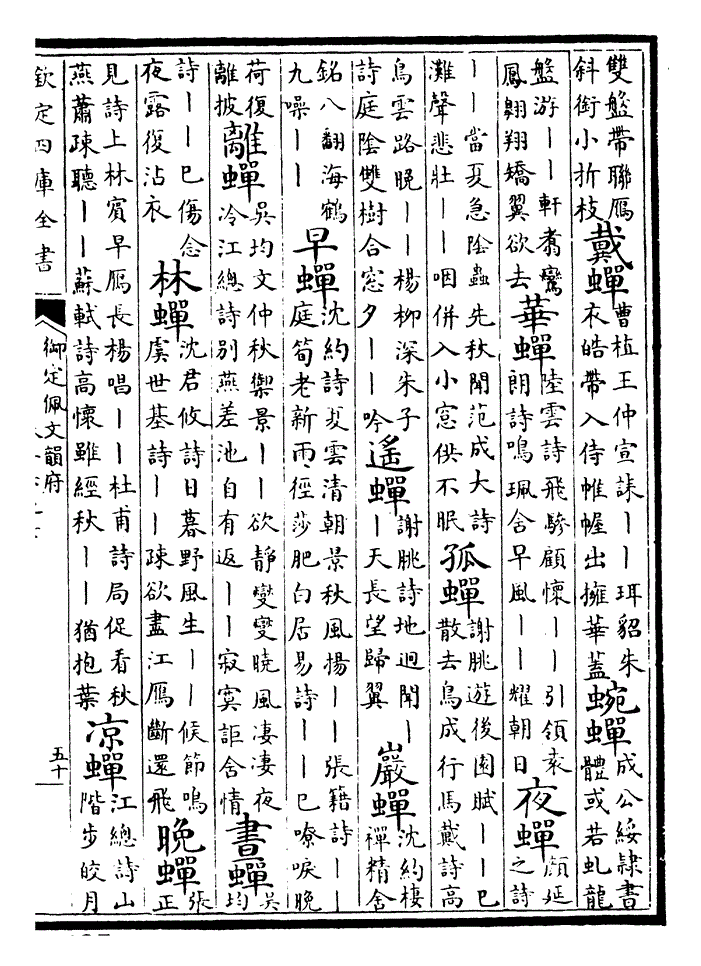 雙盤帶聯鴈
斜銜小折枝
戴蟬
曹植王仲宣誄丨丨珥貂朱
衣皓帶入侍帷幄出擁華蓋
蜿蟬
成公綏隷書
體或若虬龍
盤游丨丨軒翥鸞
鳳翺翔矯翼欲去
華蟬
陸雲詩飛驂顧懷丨丨引領袁
朗詩鳴珮含早風丨丨耀朝日
夜蟬
顔延
之詩
丨丨當夏急陰蟲先秋聞范成大詩
灘聲悲壯丨丨咽併入小窓供不眠
孤蟬
謝朓遊後園賦丨丨已
散去鳥成行馬戴詩高
鳥雲路晚丨丨楊柳深朱子
詩庭陰雙樹合窓夕丨丨吟
遙蟬
謝朓詩地迥聞丨
丨天長望歸翼
巖蟬
沈約棲
禪精舍
銘八翻海鶴
九噪丨丨
早蟬
沈約詩夏雲清朝景秋風揚丨丨張籍詩丨丨
庭筍老新雨徑莎肥白居易詩丨丨已嘹唳晚
荷復
離披
離蟬
吳均文仲秋禦景丨丨欲靜變變曉風凄凄夜
冷江總詩别燕差池自有返丨丨寂寞詎含情
書蟬
吳
均
詩丨丨已傷念
夜露復沾衣
林蟬
沈君攸詩日暮野風生丨丨候節鳴
虞世基詩丨丨疎欲盡江鴈斷還飛
晚蟬
張
正
見詩上林賓早鴈長楊唱丨丨杜甫詩局促看秋
燕蕭疎聽丨丨蘇軾詩高懷雖經秋丨丨猶抱葉
凉蟬
江總詩山
階步皎月
欽定四庫全書
御定佩文韻府
五十